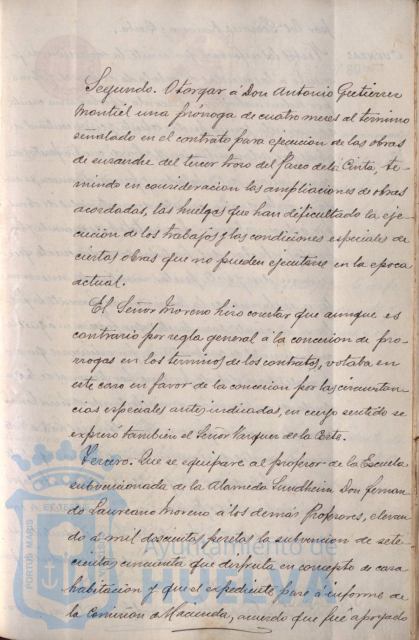 Segundo. Otorgar á Don Antonio Gutierrez
Montiel una prórroga de cuatro meses al término
señalado en el contrato para ejecución de las obras
de ensanche del tercer trozo del Paseo de la Cinta, te-
niendo en consideracion las ampliaciones de obras
acordadas, las huelgas que han dificultado la eje-
cución de los trabajos y las condiciones especiales de
ciertas obras que no pueden ejecutarse en la época
actual.
El Señor Moreno hizo constar que aunque es
contrario por regla general á la concesion de pró-
rrogas en los términos de los contratos, votaba en
este caso en favor de la concesion por las circunstan-
cias especiales antes indicadas, en cuyo sentido se
expresó tambien el Señor Vazquez de la Corte.
Tercero. Que se equipare al profesor de la Escuela
subvencionada de la Alameda Sundheim Don Fernan-
do Laureano Moreno á los demás Profesores, elevan-
do á mil doscientas pesetas la subvencion de sete-
cientas cincuenta que disfruta en concepto de casa
habitación y que el expediente pase á informe de
la Comisión de Hacienda, acuerdo que fué apoyado
PORTUS MARIS
Ayuntamiento de
HUELVA